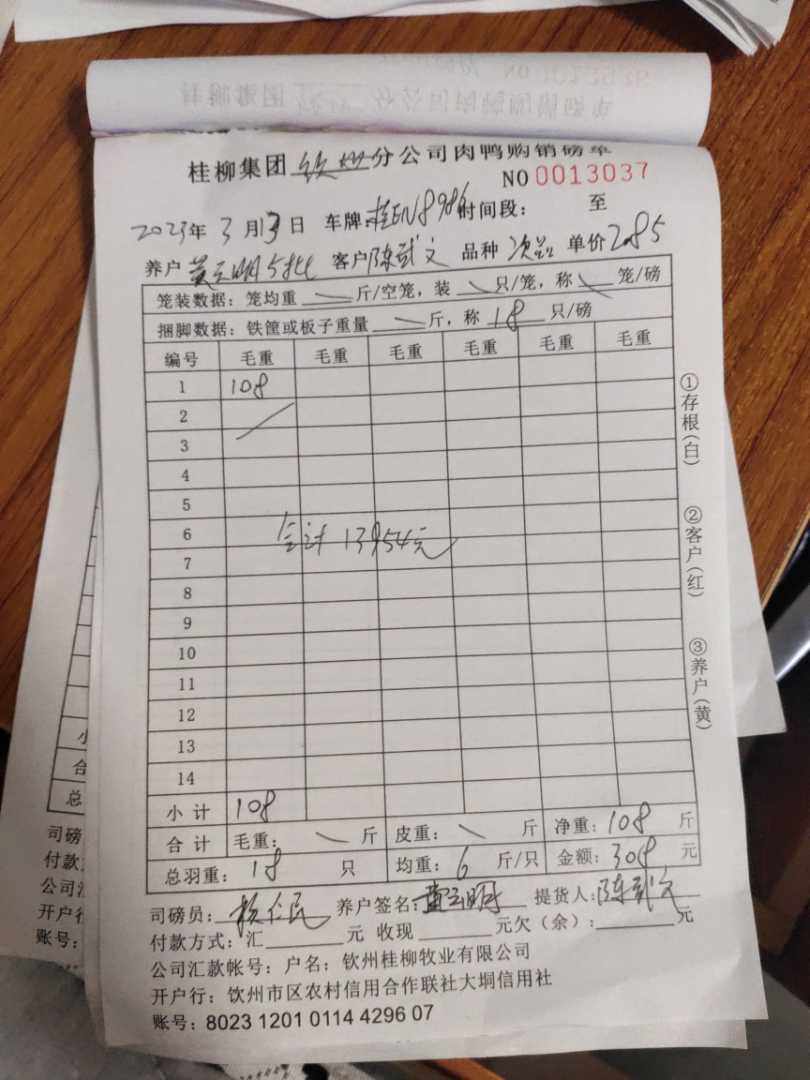 桂柳集团 钦州 分公司肉鸭购销磅单
NO 0013037
2023年 3月13日 车牌:桂EN8986 时间段: 至
养户 黄立明5批 客户 陈武文 品种 次品 单价 2.85
笼装数据: 笼均重 斤/空笼, 装 只/笼, 称 笼/磅
捆脚数据: 铁筐或板子重量 斤, 称 18 只/磅
编号 毛重 毛重 毛重 毛重 毛重 毛重
1 108
2
3
4
5
6
合计 13954元
7
8
9
10
11
12
13
14
小计 108
合计 毛重: 斤 皮重: 斤 净重: 108 斤
总羽重: 18 只 均重: 6 斤/只 金额: 308 元
司磅员: 养户签名: 黄立明 提货人: 陈武文
付款方式: 汇 元 收现 元欠(余): 元
公司汇款帐号: 户名: 钦州桂柳牧业有限公司
开户行: 钦州市区农村信用合作联社大垌信用社
账号: 8023 1201 0114 4296 07
①存根(白)
②客户(红)
③养户(黄)
小
合
总
司磅
付款
公司汇
开户行
账号: